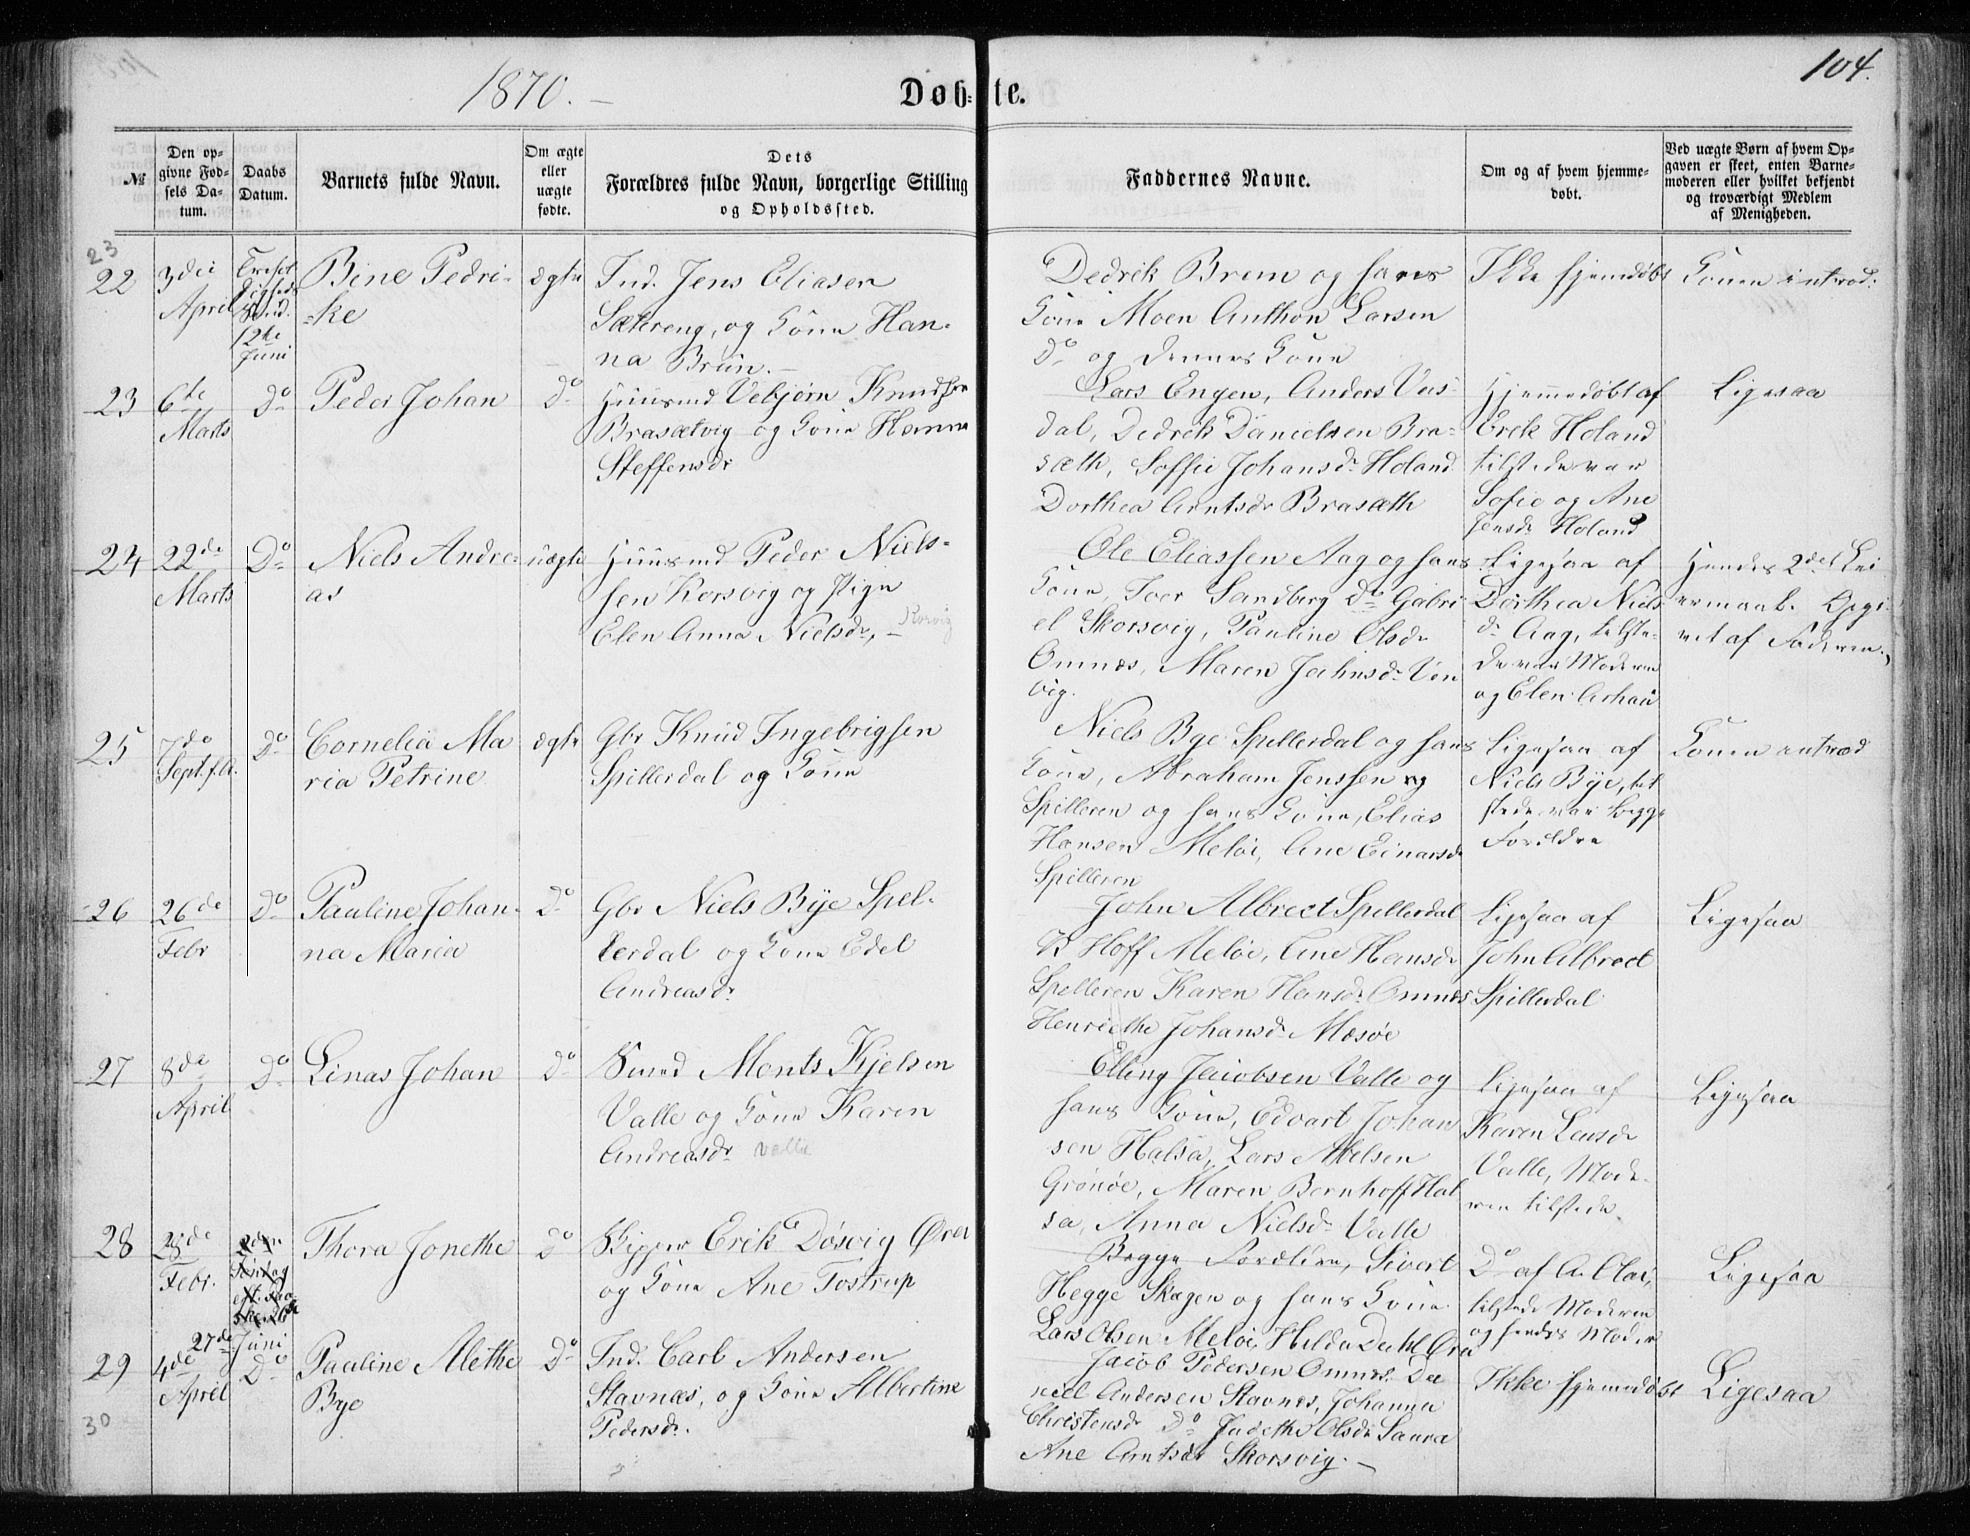 104.
1870. –
Døb- te.
№
Den op-
givne Fød-
sels Da-
tum.
Daabs
Datum.
Barnets fulde Navn.
Om ægte
eller
uægte
fødte.
Dets
Forældres fulde Navn, borgerlige Stilling
og Opholdssted.
Faddernes Navne.
Om og af hvem hjemme-
døbt.
Ved uægte Børn af hvem Op-
gaven er skeet, enten Barne-
moderen eller hvilket bekjendt
og troværdigt Medlem
af Menigheden.
23
22
3die
April
Sønd.
12te
Juni
Bine Pedri-
-ke
ægte
Ind. Jens Eliasen
Sætereng, og Kone Han-
na Brun.–
Dedrik Brem og hans
Kone Moen Anthon Larsen
Do og dennes Kone
Ikke hjemdøbt
Konen introd.
23
6te
Marts
Do
Peder Johan
Do
Huusmd Vebjørn Knudsen
Brasætvig og Kone Hanna
Steffensdr
Lars Engen, Anders Vas-
dal, Dedrik Danielsen Bra-
sæth, Soffie Johansdr Holand
Dorthea Arntsdr Brasæth
Hjemmedøbt af
Erik Holand
tilstede var
Sofie og Ane
Jensdr Holand
Ligesaa
24
22de
Marts
Do
Niels Andre-
as
uægte
Huusmd Peder Niels-
sen Korsvig og Pige
Elen Anna Nielsdr, –
Korsvig
Ole Eliassen Aag og hans
Kone, Iver Sandberg Do Gabri
el Skorsvig, Pauline Olsdr
Omnæs, Maren Jachusdr Væn
vig.
Ligesaa af
Dorthea Niels
dr Aag, tilste-
de var Moderen
og Elen Arhaü
Hendes 2det Lei
ermaal. Opgi-
vet af Faderen.
25
7de
Sept. f. A.
Do
Cornelia Ma
ria Petrine
ægte
Gbr Knud Ingebrigsen
Spillerdal og Kone
Niels Bye Spellerdal og hans
Kone, Abraham Jenssen og
Spilleren og hans Kone, Elias
Hansen Meløi, Ane Einarsdr
Spilleren
Ligesaa af
Niels Bye, til
stede var begge
Forældre
Konen introd
26
26de
Febr
Do
Pauline Johan-
na Maria
Do
Gbr Niels Bye Spel-
lerdal og Kone Edel
Andreasdr
John Albrect Spellerdal
K Hoff Meløi, Ane Hansdr
Spelleren Karen Hansdr Omnæs
Henriethe Johansdr Mæsøe
Ligesaa af
John Albrect
Spillerdal
Ligesaa
27
8de
April
Do
Linas Johan
Do
Smed Monts Kjelsen
Valle og Kone Karen
Andreasdr
Valle
Elling Jacobsen Valle og
hans Kone, Edvart Johan
sen Halsa, Lars Abelsen
Grønøe, Maren Bernhoff Hal
sa, Anna Nielsdr Valle
Ligesaa af
Karen Lensdr
Valle, Mode-
ren tilstede
Ligesaa
28
28de
Febr.
27de Juni
Thora Jonethe
Do
Skipper Erik Døsvig Ørne
og Kone Ane Tostrup
Begge Forældre, Sivert
Hegge Skagen og hans Kone
Lars Olsen Meløi, Hilda Dahl Ørn
Do af A. Olai,
tilstede Moderen
og hendes Moder
Ligesaa
29
4de
April
Do
Pauline Alethe
Bye
Do
Ind. Carl Andersen
Stavnæs, og Kone Albertine
Pedersdr.
Jacob Pedersen Omnæs, Da
niel Andersen Stavnæs, Johanna
Christensdr Do Judethe Olsdr Saura
Ane Arntsdr Skorsvig. –
Ikke hjemmedøbt
Ligesaa
30